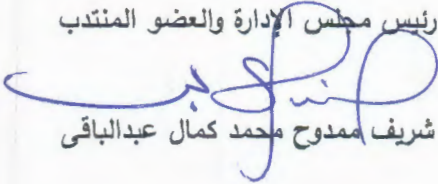 رئيس مجلس الإدارة والعضو المنتدب
شريف ممدوح محمد كمال عبدالباقى